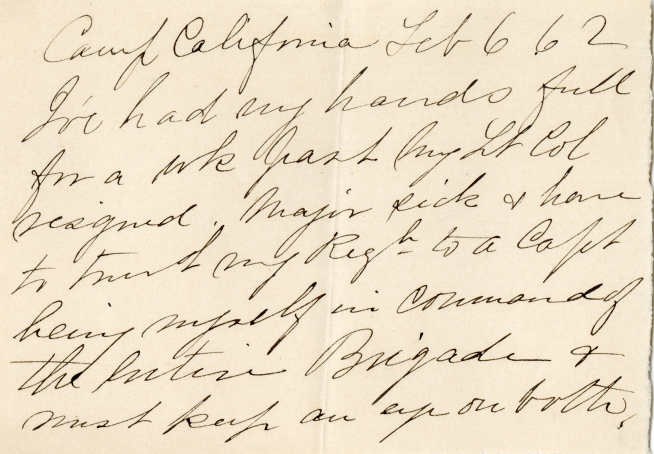 Camp California Feb 6 62
I've had my hands full
for a wk past My Lt Col
resigned. Major sick & have
to trust my Regt to a Capt
being myself in command of
the entire Brigade &
must keep an eye on both.